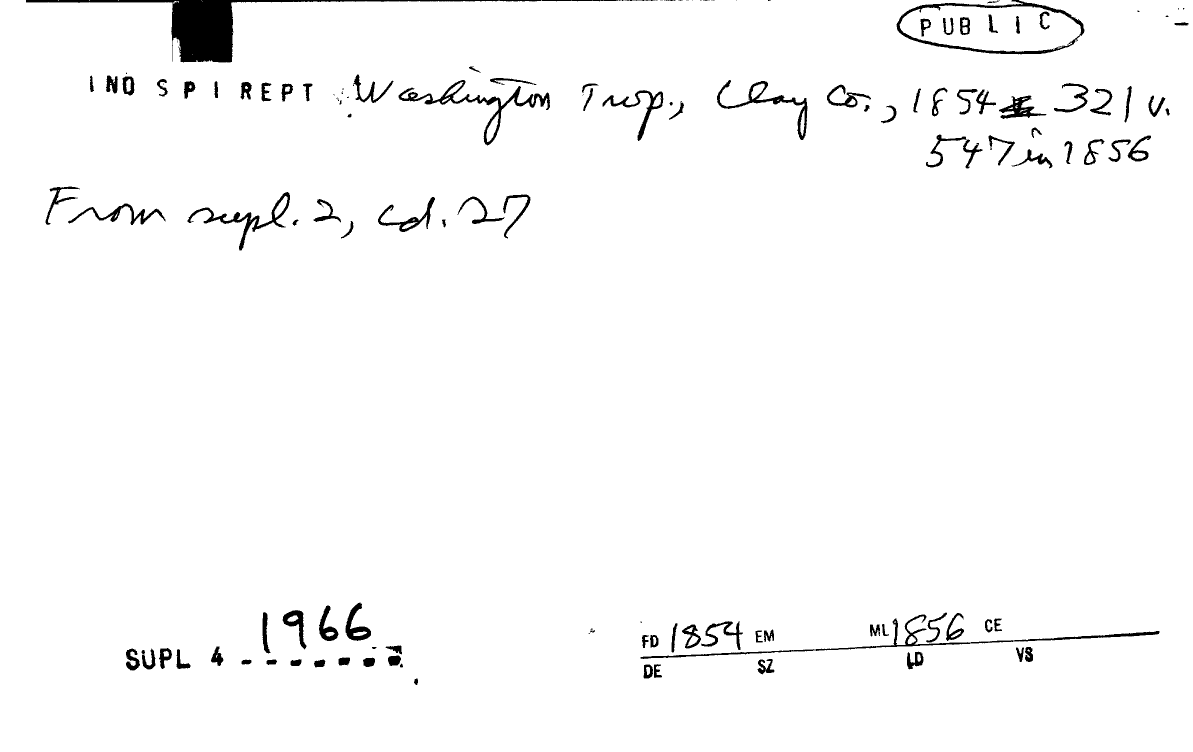 PUBLIC
IND SPI REPT Washington Twp., Clay Co., 1854 321 v.
547 in 1856
From supl. 2, cd. 27
1966
SUPL 4
FD 1854 EM ML 1856 CE
DE SZ LD VS